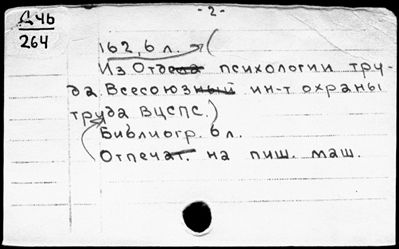 Д46
264
- 2 -
162, 6 л. (
Из Отдела психологии тру-
да Всесоюзный ин-т охраны
труда ВЦСПС.)
Библиогр. 6 л.
Отпечат. на пиш. маш.